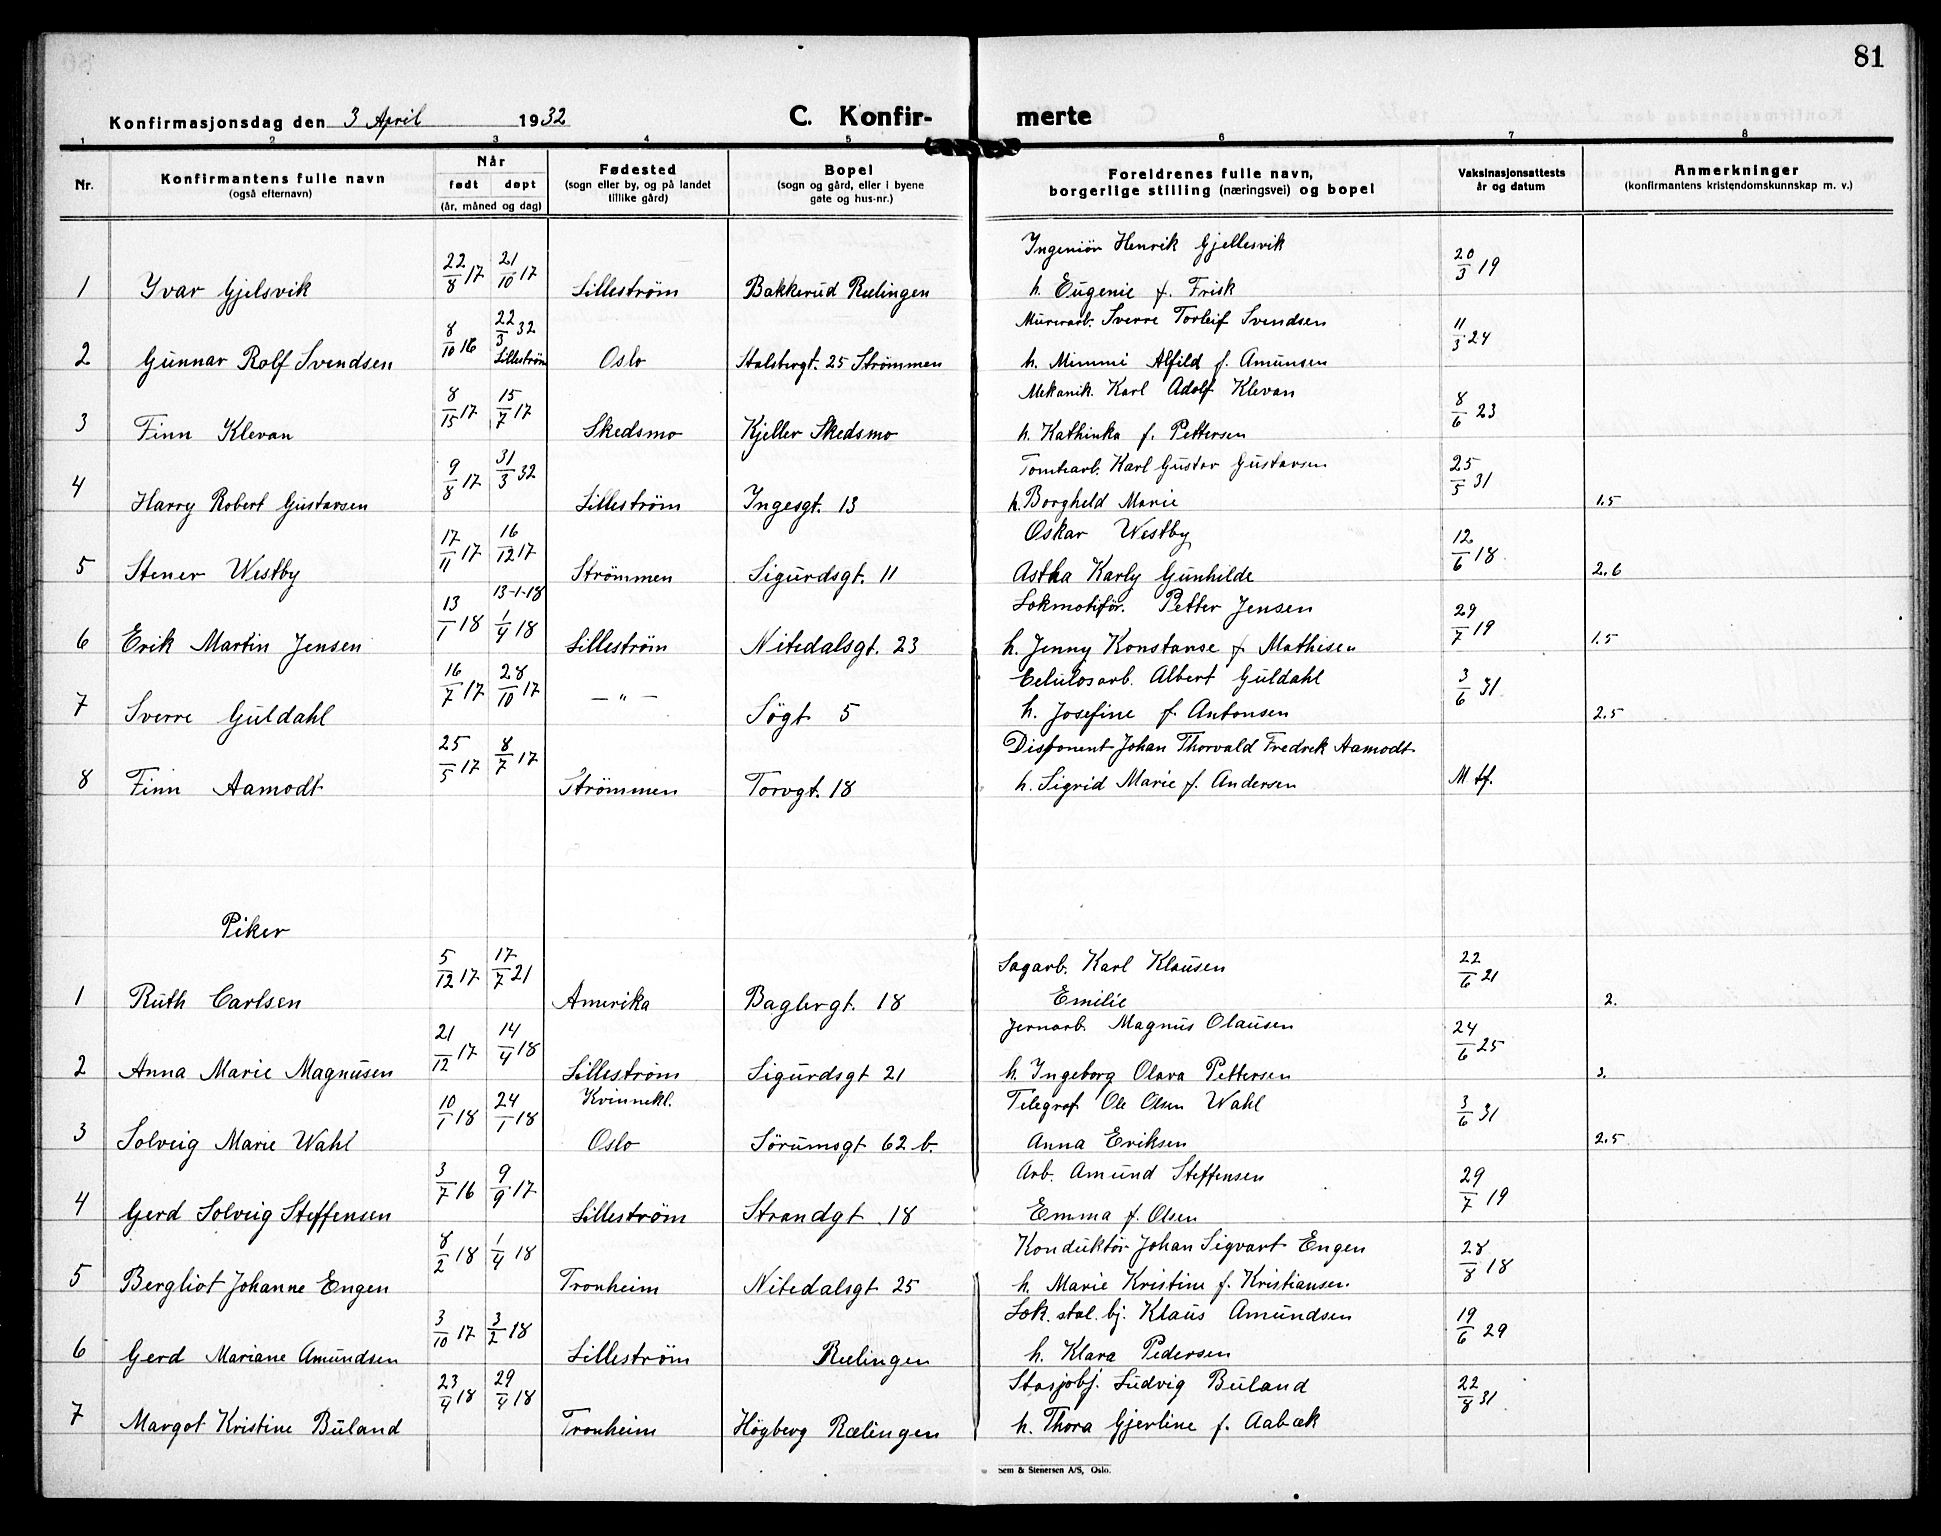 81
Konfirmasjonsdag den 3 April 1932 C. Konfir- merte
1 2 3 4 5 6 7 8
Nr. Konfirmantens fulle navn (også efternavn) Når født døpt (år, måned og dag) Fødested (sogn eller by, og på landet tillike gård) Bopel (sogn og gård, eller i byene gate og hus-nr.) Foreldrenes fulle navn, borgerlige stilling (næringsvei) og bopel Vaksinasjonsattests år og datum Anmerkninger (konfirmantens kristendomskunnskap m. v.)
Ingeniør Henrik Gjellesvik
1 Yvar Gjelsvik 22/8 17 21/10 17 Lilleström Bakkerud Rælingen h. Eugenie f. Frisk 20/3 19
Murerarb. Sverre Torleif Svendsen
2 Gunnar Rolf Svendsen 8/10 16 22/3 32 Lilleström Oslo Stalsbergt. 25 Strømmen h. Mimmi Alfild f. Amunsen 11/3 24
Mekanik. Karl Adolf Klevan
3 Finn Klevan 8/15 17 15/7 17 Skedsmo Kjeller Skedsmo h. Kathinka f. Pettersen 8/6 23
Tomtearb. Karl Gustav Gustavsen
4 Harry Robert Gustavsen 9/8 17 31/3 32 Lilleström Ingesgt. 13 h. Borgheld Marie 25/5 31 1.5
Oskar Westby
5 Stener Westby 17/11 17 16/12 17 Strømmen Sigurdsgt. 11 Astha Karly Gunhilde 12/6 18 2.6
13-1-18 Lokmotiför. Petter Jensen
6 Erik Martin Jensen 13/1 18 1/4 18 Lilleström Nitedalsgt. 23 h. Jenny Konstanse f. Mathisen 29/7 19 1.5
Celulosarb. Albert Guldahl
7 Sverre Guldahl 16/7 17 28/10 17 — " — Søgt 5 h. Josefine f. Antonsen 3/6 31 2.5
Disponent Johan Thorvald Fredrek Aamodt
8 Finn Aamodt 25/5 17 8/7 17 Strømmen Torvgt. 18 h. Sigrid Marie f. Andersen M tf.
Piker
Sagarb. Karl Klausen
1 Ruth Carlsen 5/12 17 17/7 21 Amerika Baglergt. 18 Emilie 22/6 21 2.
Jernarb. Magnus Olausen
2 Anna Marie Magnusen 21/12 17 14/4 18 Lilleström Sigurdsgt 21 h. Ingeborg Olava Pettersen 24/6 25 3.
Kvinnekl. Telegraf Ole Olsen Wahl
3 Solveig Marie Wahl 10/1 18 24/1 18 Oslo Sørumsgt 62 b. Anna Eriksen 3/6 31 2.5
Arb. Amund Steffensen
4 Gerd Solveig Steffensen 3/7 16 9/9 17 Lilleström Strandgt. 18 Emma f. Olsen 29/7 19
Konduktør Johan Sigvart Engen
5 Bergliot Johanne Engen 8/2 18 1/4 18 Tronheim Nitedalsgt 25 h. Marie Kristine f. Kristiansen. 28/8 18
Lok. stal. bj. Klaus Amundsen
6 Gerd Mariane Amundsen 3/10 17 3/2 18 Lilleström Rælingen h. Klara Pedersen 19/6 29
Stasjobj. Ludvig Buland
7 Margot Kristine Buland 23/4 18 29/4 18 Tronheim Högberg Rælingen h. Thora Gjerline f. Aabæk 22/8 31
Sem & Stenersen A/S, Oslo.